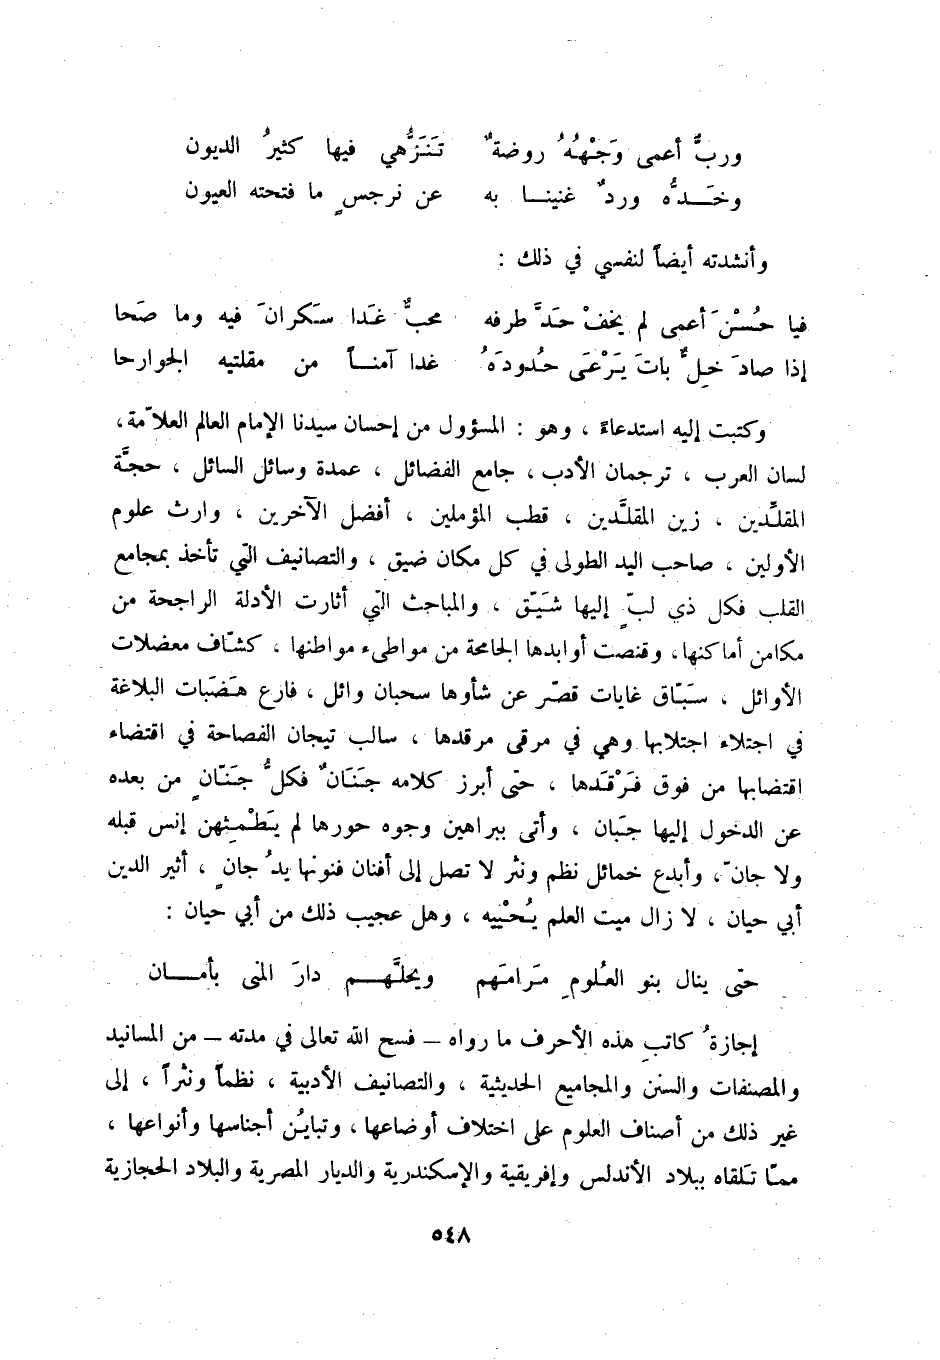 وربُّ أعمى وَجْهُهُ روضةٌ تَنَزُّهي فيها كثيرُ الديون
وخَدُّه وردٌ غنينا به عن نرجسٍ ما فتحته العيون
وأنشدته أيضاً لنفسي في ذلك :
فيا حُسْنَ أعمى لم يخفْ حَدَّ طرفه محبٌّ غَدا سَكرانَ فيه وما صَحا
إذا صادَ خِلٌّ باتَ يَرْعَى حُدودَهُ غدا آمناً من مقلتيه الجوارحا
وكتبت إليه استدعاءً ، وهو : المسؤول من إحسان سيدنا الإمام العالم العلاّمة ،
لسان العرب ، ترجمان الأدب ، جامع الفضائل ، عمدة وسائل السائل ، حجَّة
المقلِّدين ، زين المقلَّدين ، قطب المؤملين ، أفضل الآخرين ، وارث علوم
الأولين ، صاحب اليد الطولى في كل مكان ضيق ، والتصانيف التي تأخذ بمجامع
القلب فكل ذي لبّ إليها شَيّق ، والمباحث التي أثارت الأدلة الراجحة من
مكامن أماكنها ، وقنصت أوابدها الجامحة من مواطىء مواطنها ، كشّاف معضلات
الأوائل ، سَبّاق غايات قصّر عن شأوها سحبان وائل ، فارع هَضَبات البلاغة
في اجتلاء اجتلابها وهي في مرقى مرقدها ، سالب تيجان الفصاحة في اقتضاء
اقتضابها من فوق فَرْقَدها ، حتى أبرز كلامه جَنَانٌ فكلُّ جَنّانٍ من بعده
عن الدخول إليها جَبان ، وأتى ببراهين وجوه حورها لم يَطْمِثهن إنس قبله
ولا جانّ ، وأبدع خمائل نظم ونثر لا تصل إلى أفنان فنونها يدُ جانٍ ، أثير الدين
أبي حيان ، لا زال ميت العلم يُحْييه ، وهل عجيب ذلك من أبي حيان :
حتى ينال بنو العُلومِ مَرامَهم ويحلَّهم دارَ المنى بأمان
إجازةُ كاتبِ هذه الأحرف ما رواه – فسح الله تعالى في مدته – من المسانيد
والمصنفات والسنن والمجاميع الحديثية ، والتصانيف الأدبية ، نظماً ونثراً ، إلى
غير ذلك من أصناف العلوم على اختلاف أوضاعها ، وتبايُن أجناسها وأنواعها ،
ممّا تلقاه ببلاد الأندلس وإفريقية والإسكندرية والديار المصرية والبلاد الحجازية
٥٤٨